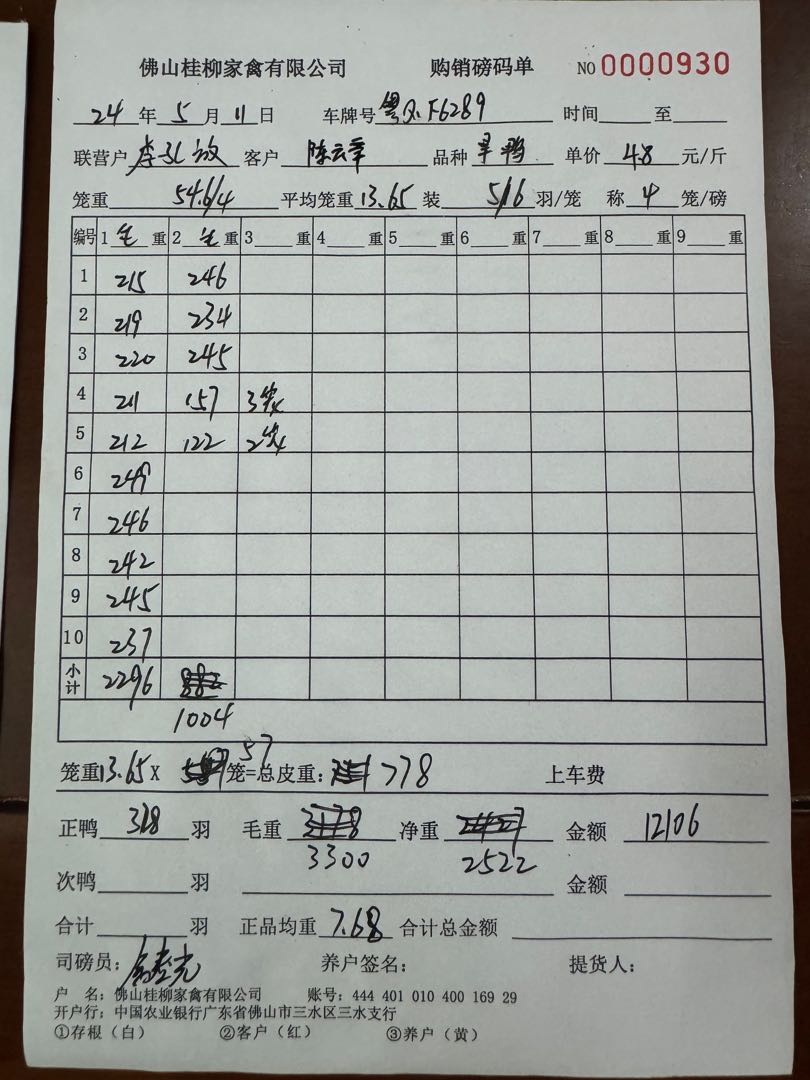 佛山桂柳家禽有限公司 购销磅码单 NO 0000930
24 年 5 月 11 日 车牌号 粤Q·F6289 时间 至
联营户 李 客户 陈云章 品种 鸭 单价 4.8 元/斤
笼重 54.6/4 平均笼重 13.65 装 5/6 羽/笼 称 4 笼/磅
编号 1 毛 重 2 毛 重 3 重 4 重 5 重 6 重 7 重 8 重 9 重
1 215 246
2 219 234
3 220 245
4 211 157 3笼
5 212 122 2笼
6 249
7 246
8 242
9 245
10 237
小计 2296
1004
笼重 13.65 X 57 笼=总皮重: 778 上车费
正鸭 328 羽 毛重 净重 金额 12106
3300 2522
次鸭 羽 金额
合计 羽 正品均重 7.68 合计总金额
司磅员: 养户签名: 提货人:
户 名: 佛山桂柳家禽有限公司 账号: 444 401 010 400 169 29
开户行: 中国农业银行广东省佛山市三水区三水支行
①存根(白) ②客户(红) ③养户(黄)